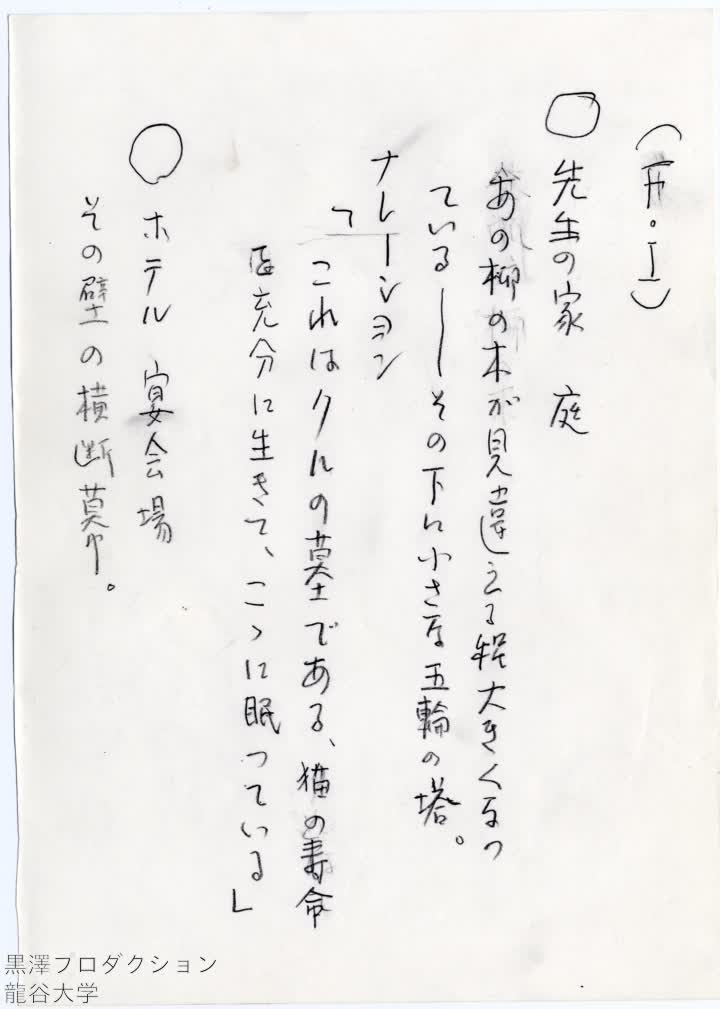 (F・I)
○先生の家 庭
あの柳の木が見違える程大きくなっ
ている──その下に小さな五輪の塔。
ナレーション
「これはクルの墓である、猫の寿命
を充分に生きて、こゝに眠っている」
○ホテル 宴会場
その壁の横断幕。
黒澤プロダクション
龍谷大学